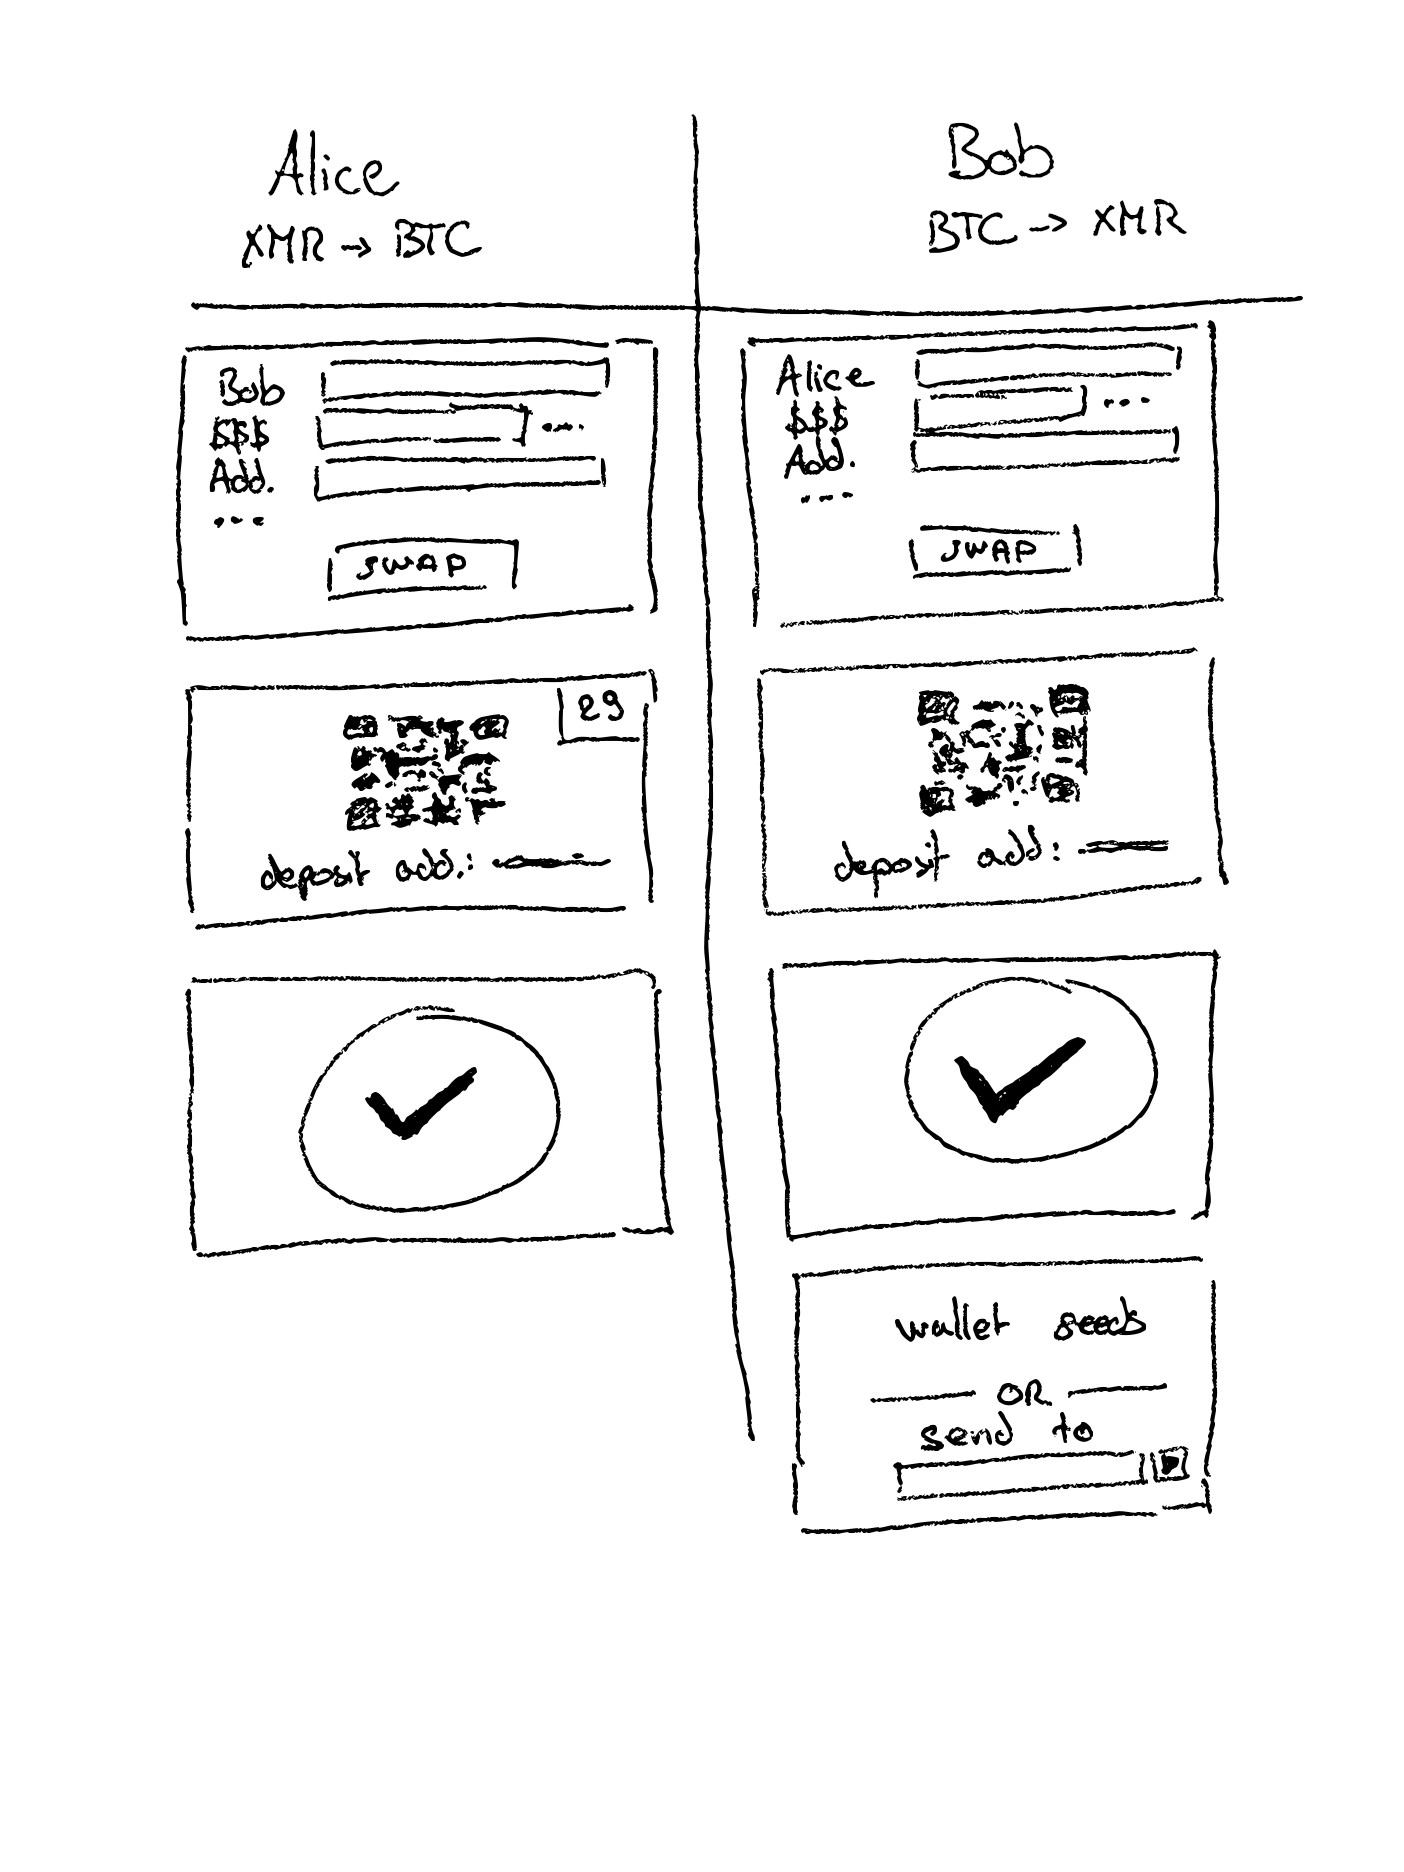 Alice
XMR → BTC
Bob
$$$ ...
Add.
...
SWAP
29
deposit add.:
Bob
BTC → XMR
Alice
$$$ ...
Add.
...
SWAP
deposit add:
wallet seeds
OR
send to